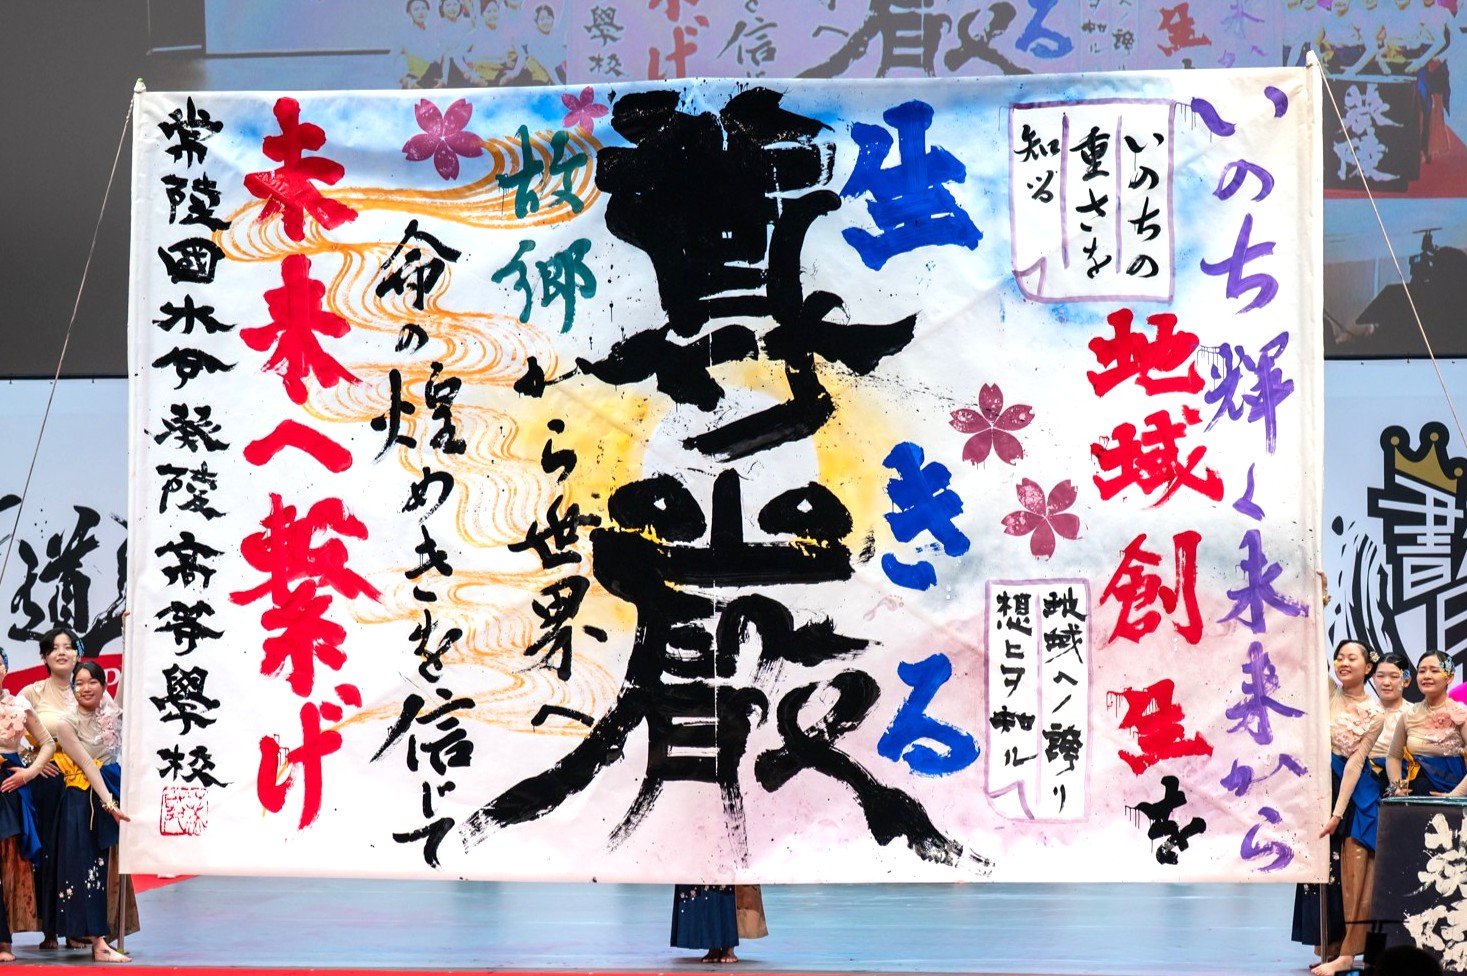 いのち輝く未来から
いのちの
重さを
知る
地域創生を
地域ヘノ誇リ
想ヒヲ知ル
生きる
尊厳
故郷から世界へ
命の煌めきを信じて
未来へ繋げ
常陸國水戸葵陵高等學校
道
葵陵